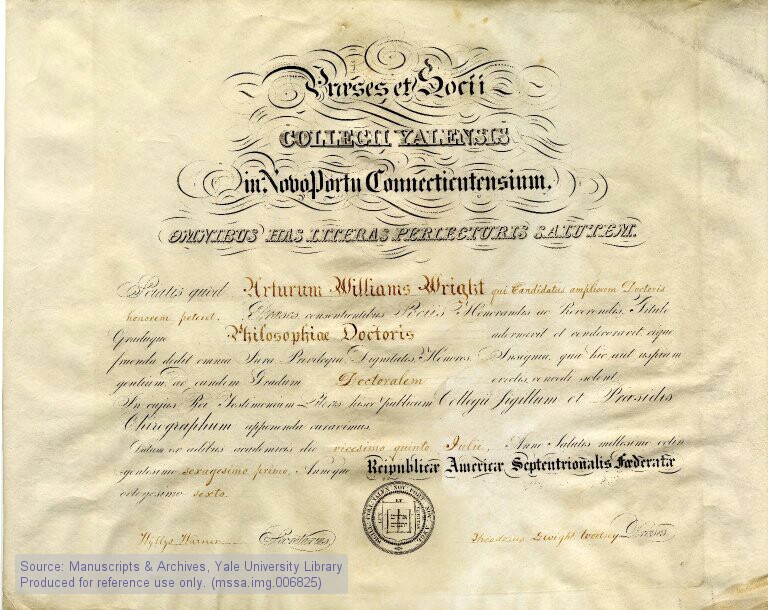 Præses et Socii
COLLEGII YALENSIS
in Novo Portu Connecticutensium,
OMNIBUS HAS LITERAS PERLECTURIS SALUTEM.
Sciatis quod Arturum Williams Wright qui Candidatus ampliorem Doctoris
honorem peteret, Præses, consentientibus Sociis Honorandis ac Reverendis, Titulo
Graduque Philosophiæ Doctoris adornavit et condecoravit, eique
fruenda dedit omnia Jura, Privilegia, Dignitates, Honores, Insignia, quæ hic aut uspiam
gentium, ad eundem Gradum Doctoralem evectis, concedi solent.
In cujus Rei Testimonium Literis hisce publicum Collegii Sigillum et Præsidis
Chirographum apponenda curavimus.
Datum ex ædibus academicis die vicesimo quinto Julii, Anno Salutis millesimo octin
gentesimo sexagesimo primo, Annoque Reipublicæ Americæ Septentrionalis Fœderatæ
octogesimo sexto.
Wyllys Warner Theodorus Dwight Woolsey Præses
Source: Manuscripts & Archives, Yale University Library
Produced for reference use only. (mssa.img.006825)